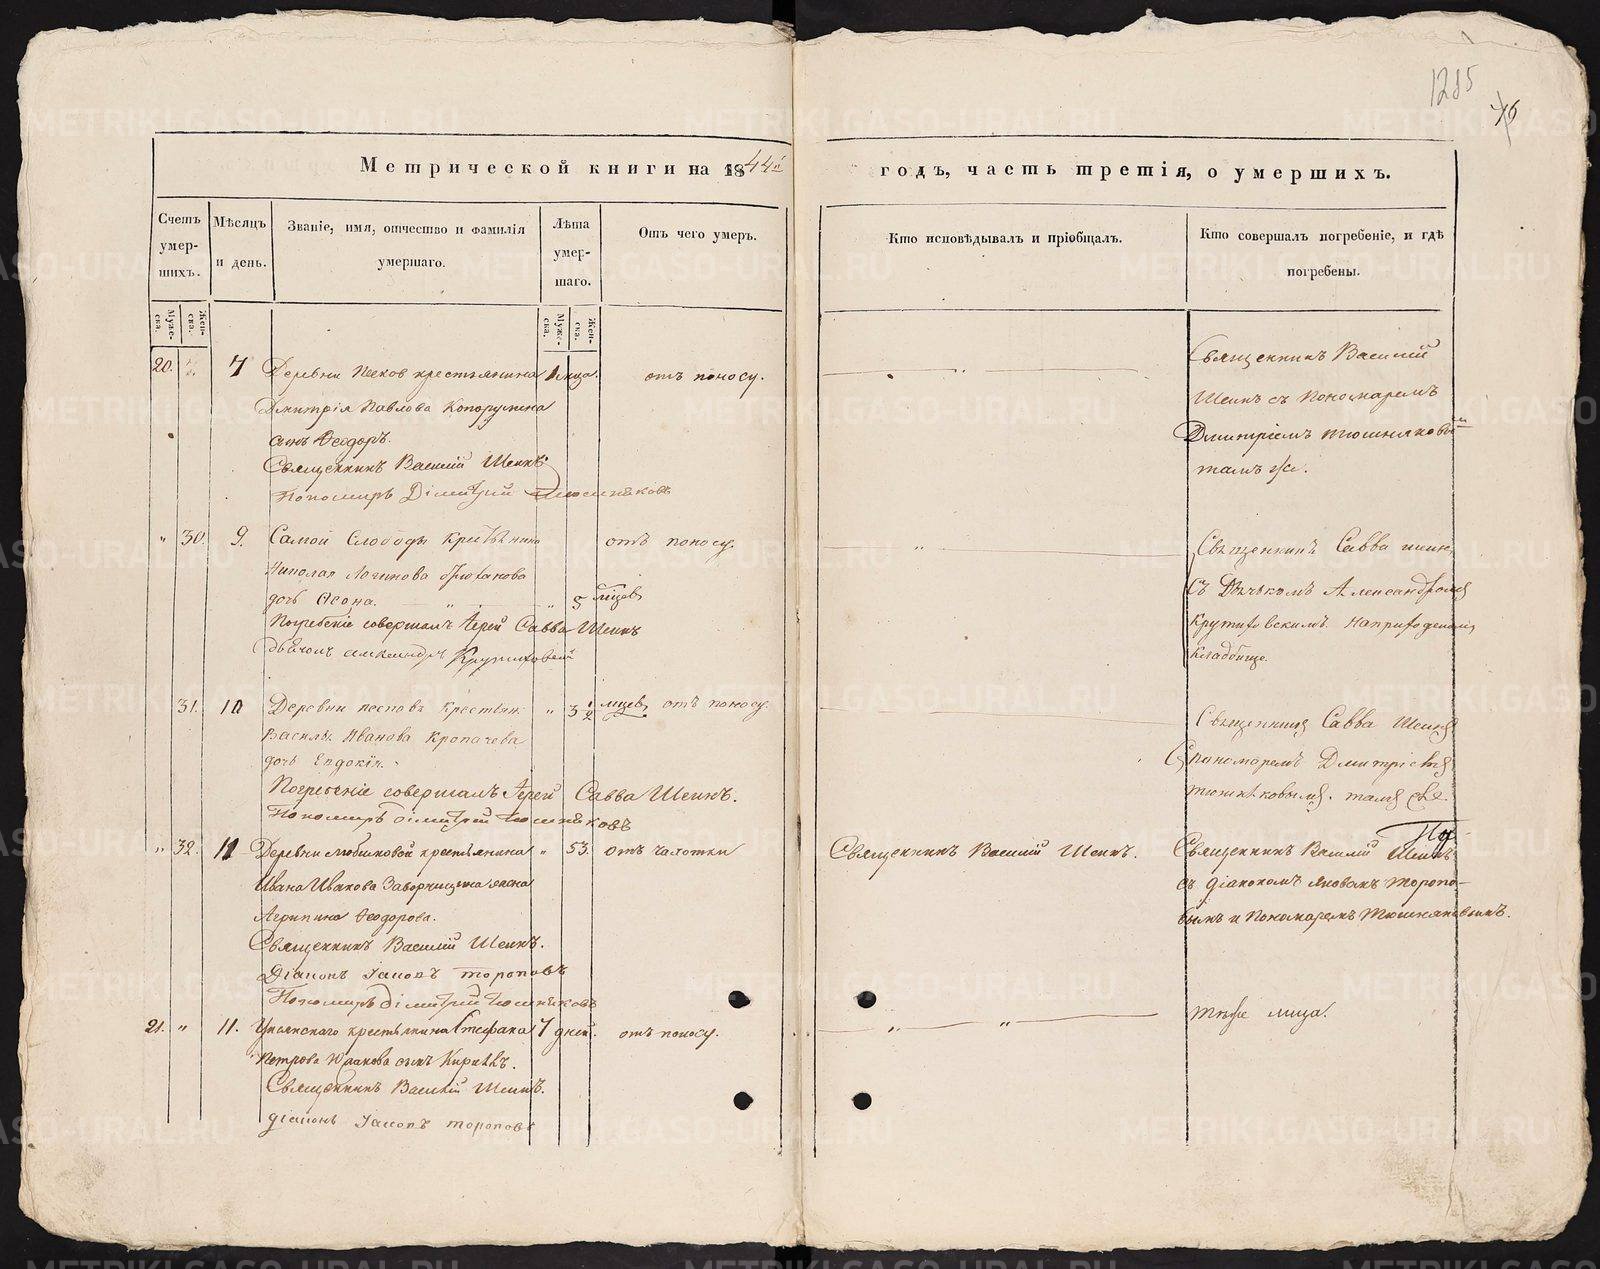 1285
46
Метрической книги на 1844й годъ, часть третія, о умершихъ.
Счетъ умер-шихъ.
Мѣсяцъ и день.
Званіе, имя, отчество и фамилія умершаго.
Лѣта умер-шаго.
Отъ чего умеръ.
Кто исповѣдывалъ и пріобщалъ.
Кто совершалъ погребеніе, и гдѣ погребены.
Муже-ска.
Жен-ска.
Муже-ска.
Жен-ска.
20. 7 Деревни Песков крестьянина 1 отъ поносу. Священникъ Василій
Дмитрія Павлова сынъ Ѳеодоръ. Шеинъ съ Пономаремъ
Дмитріемъ Тюшняковымъ
тамъ же.
Священникъ Василій Шеинъ
Пономарь Дімитрій Тюшняковъ
" 30. 9. Самой Слободы отъ поносу. Священникъ Савва Шеинъ
Николая Логинова
дочь 5 мѣсяцев съ Дьячкомъ Александромъ
Погребеніе совершалъ Іерей Савва Шеинъ
дьячокъ Александръ Крутиховскій
Крутиховскимъ. На приходскомъ
кладбище.
31. 10 Деревни Песковъ Крестьян. " 3 1/2 мѣсяцев отъ поносу. Священникъ Савва Шеинъ
Василья Иванова Кропачева
дочь Евдокія.
съ пономаремъ Дмитріемъ
Тюшняковымъ. тамъ же.
Погребеніе совершалъ Іерей Савва Шеинъ.
Пономарь Дімитрій Тюшняковъ
" 32. 11 Деревни крестьянина " 53. отъ чахотки Священникъ Василій Шеинъ. Священникъ Василій Шеинъ
Ивана Иванова жена съ діакономъ Яковомъ Торопо-
Агрипина Ѳеодорова. вымъ и Пономаремъ Тюшняковымъ.
Священникъ Василій Шеинъ.
Діаконъ Іаковъ Тороповъ
Пономарь Дімитрій Тюшняковъ
21. " 11. крестьянина Стефана 7 дней. отъ поносу. " " тѣже лица.
Петрова сынъ
Священникъ Василій Шеинъ.
діаконъ Іаковъ Тороповъ
METRIKI.GASO-URAL.RU